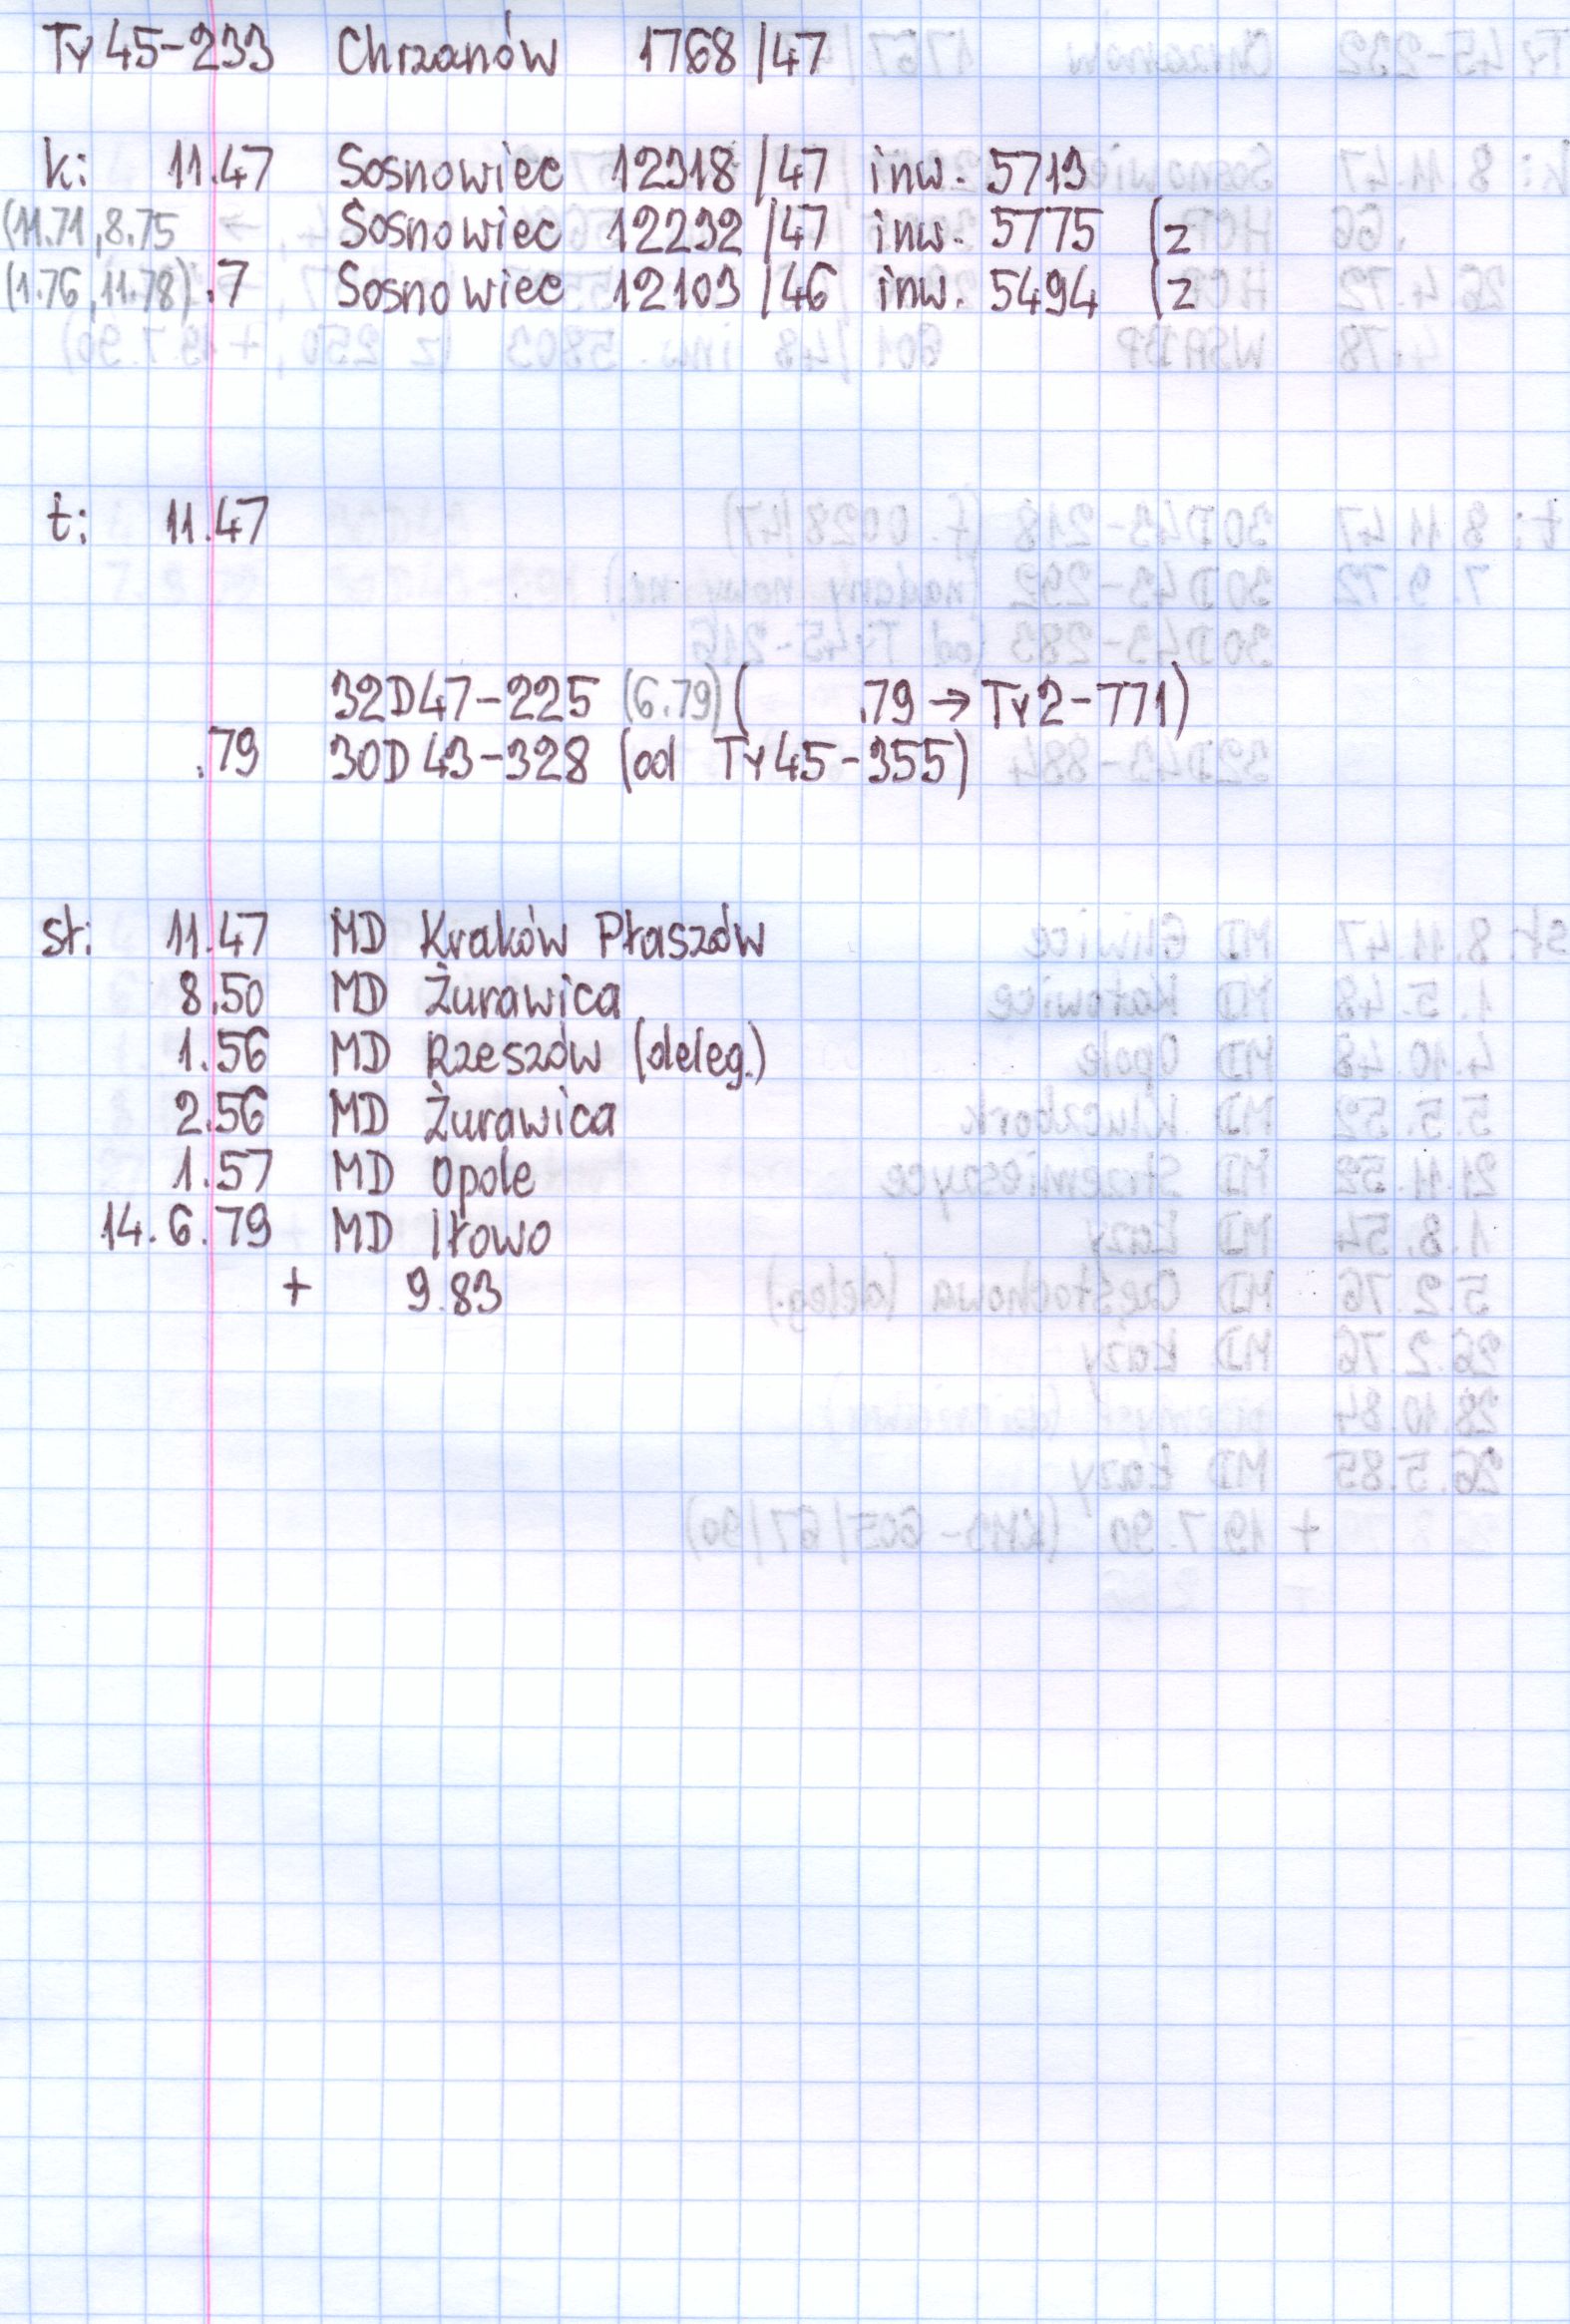 Ty45-233 Chrzanów 1768/47
k: 11.47 Sosnowiec 12318/47 inw. 5713
(11.71, 8.75 Sosnowiec 12232/47 inw. 5775 (z
(1.76, 11.78) .7 Sosnowiec 12103/46 inw. 5494 (z
t: 11.47
32D47-225 (6.79) ( .79 → Ty2-771)
.79 30D43-328 (od Ty45-355)
st: 11.47 MD Kraków Płaszów
8.50 MD Żurawica
1.56 MD Rzeszów (deleg.)
2.56 MD Żurawica
1.57 MD Opole
14.6.79 MD Iłowo
+ 9.83